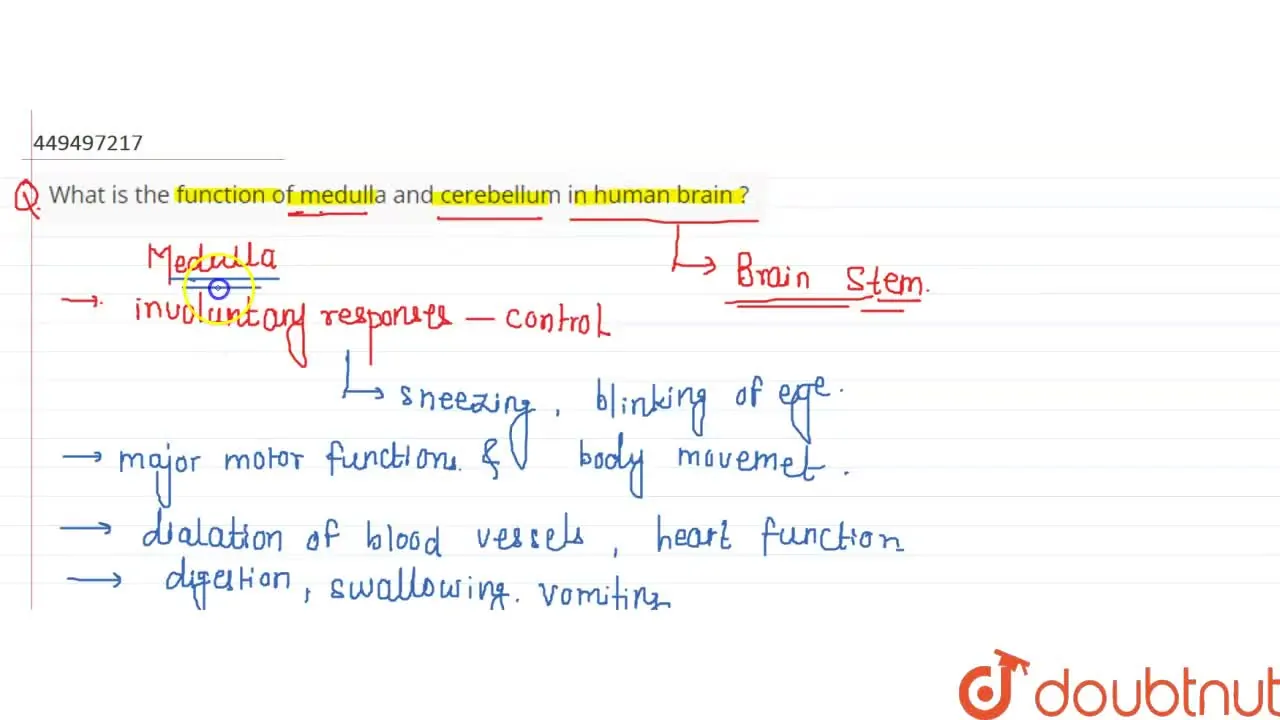 449497217
Q. What is the function of medulla and cerebellum in human brain ?
Medulla
→ Brain Stem.
→ involuntary responses — control
→ sneezing, blinking of eye.
→ major motor functions & body movemet.
→ dialation of blood vessels, heart function
→ digestion, swallowing. vomiting
doubtnut